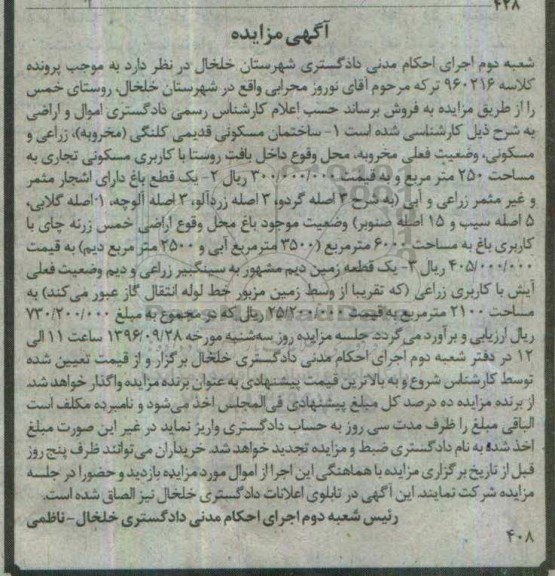 ۴۲۸
آگهی مزایده
شعبه دوم اجرای احکام مدنی دادگستری شهرستان خلخال در نظر دارد به موجب پرونده
کلاسه ۹۶۰۲۱۶ ترکه مرحوم آقای نوروز محرابی واقع در شهرستان خلخال، روستای خمس
را از طریق مزایده به فروش برساند حسب اعلام کارشناس رسمی دادگستری اموال و اراضی
به شرح ذیل کارشناسی شده است ۱- ساختمان مسکونی قدیمی کلنگی (مخروبه)، زراعی و
مسکونی، وضعیت فعلی مخروبه، محل وقوع داخل بافت روستا با کاربری مسکونی تجاری به
مساحت ۲۵۰ متر مربع و به قیمت ۳۰۰/۰۰۰/۰۰۰ ریال ۲- یک قطع باغ دارای اشجار مثمر
و غیر مثمر زراعی و آبی (به شرح ۳ اصله گردو، ۳ اصله زردآلو، ۳ اصله آلوچه، ۱ اصله گلابی،
۵ اصله سیب و ۱۵ اصله صنوبر) وضعیت موجود باغ محل وقوع اراضی خمس زرنه چای با
کاربری باغ به مساحت ۶۰۰۰ مترمربع (۳۵۰۰ مترمربع آبی و ۲۵۰۰ متر مربع دیم) به قیمت
۴۰۵/۰۰۰/۰۰۰ ریال ۳- یک قطعه زمین دیم مشهور به سینکبیر زراعی و دیم وضعیت فعلی
آیش با کاربری زراعی (که تقریبا از وسط زمین مزبور خط لوله انتقال گاز عبور می کند) به
مساحت ۲۱۰۰ مترمربع به قیمت ۲۵/۲۰۰/۰۰۰ ریال که در مجموع به مبلغ ۷۳۰/۲۰۰/۰۰۰
ریال ارزیابی و برآورد می گردد. جلسه مزایده روز سه‌شنبه مورخه ۱۳۹۶/۰۹/۲۸ ساعت ۱۱ الی
۱۲ در دفتر شعبه دوم اجرای احکام مدنی دادگستری خلخال برگزار و از قیمت تعیین شده
توسط کارشناس شروع و به بالاترین قیمت پیشنهادی به عنوان برنده مزایده واگذار خواهد شد.
از برنده مزایده ده درصد کل مبلغ پیشنهادی فی‌المجلس اخذ می‌شود و نامبرده مکلف است
الباقی مبلغ را ظرف مدت سی روز به حساب دادگستری واریز نماید در غیر این صورت مبلغ
اخذ شده به نام دادگستری ضبط و مزایده تجدید خواهد شد. خریداران می‌توانند ظرف پنج روز
قبل از تاریخ برگزاری مزایده با هماهنگی این اجرا از اموال مورد مزایده بازدید و حضورا در جلسه
مزایده شرکت نمایند. این آگهی در تابلوی اعلانات دادگستری خلخال نیز الصاق شده است.
رئیس شعبه دوم اجرای احکام مدنی دادگستری خلخال - ناظمی
۴۰۸